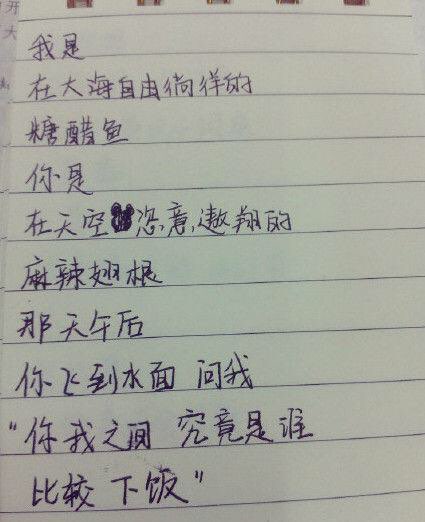 我是
在大海自由徜徉的
糖醋鱼
你是
在天空恣意遨翔的
麻辣翅根
那天午后
你飞到水面 问我
"你我之间 究竟是谁
比较 下饭"